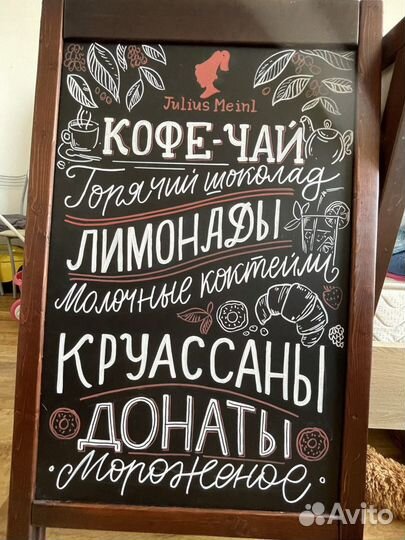 Julius Meinl
КОФЕ-ЧАЙ
Горячий шоколад
ЛИМОНАДЫ
Молочные коктейли
КРУАССАНЫ
ДОНАТЫ
Мороженое
Avito